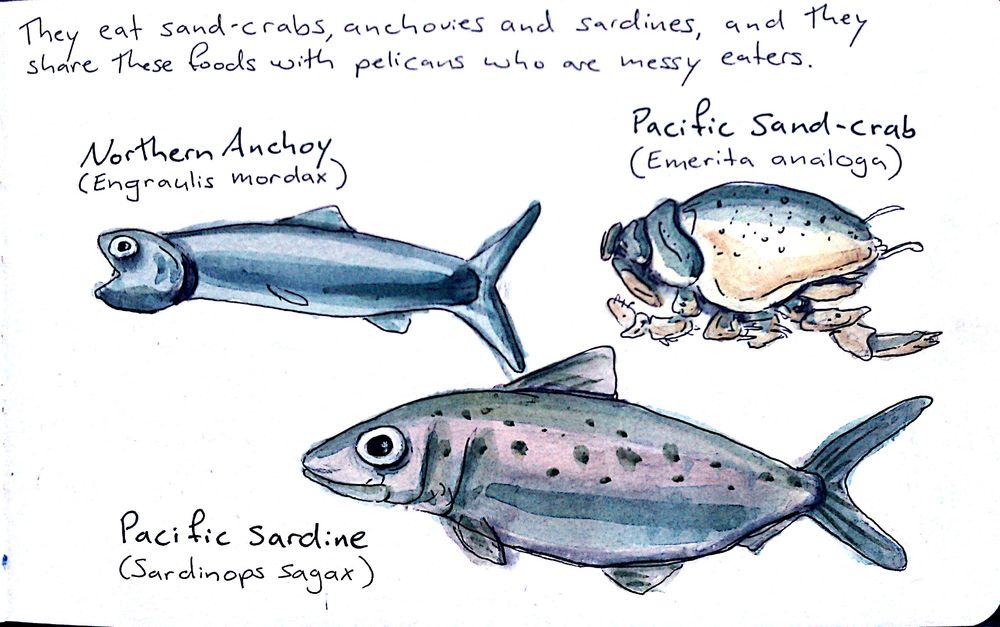 They eat sand-crabs, anchovies and sardines, and they
share these foods with pelicans who are messy eaters.
Northern Anchoy
(Engraulis mordax)
Pacific Sand-crab
(Emerita analoga)
Pacific Sardine
(Sardinops sagax)